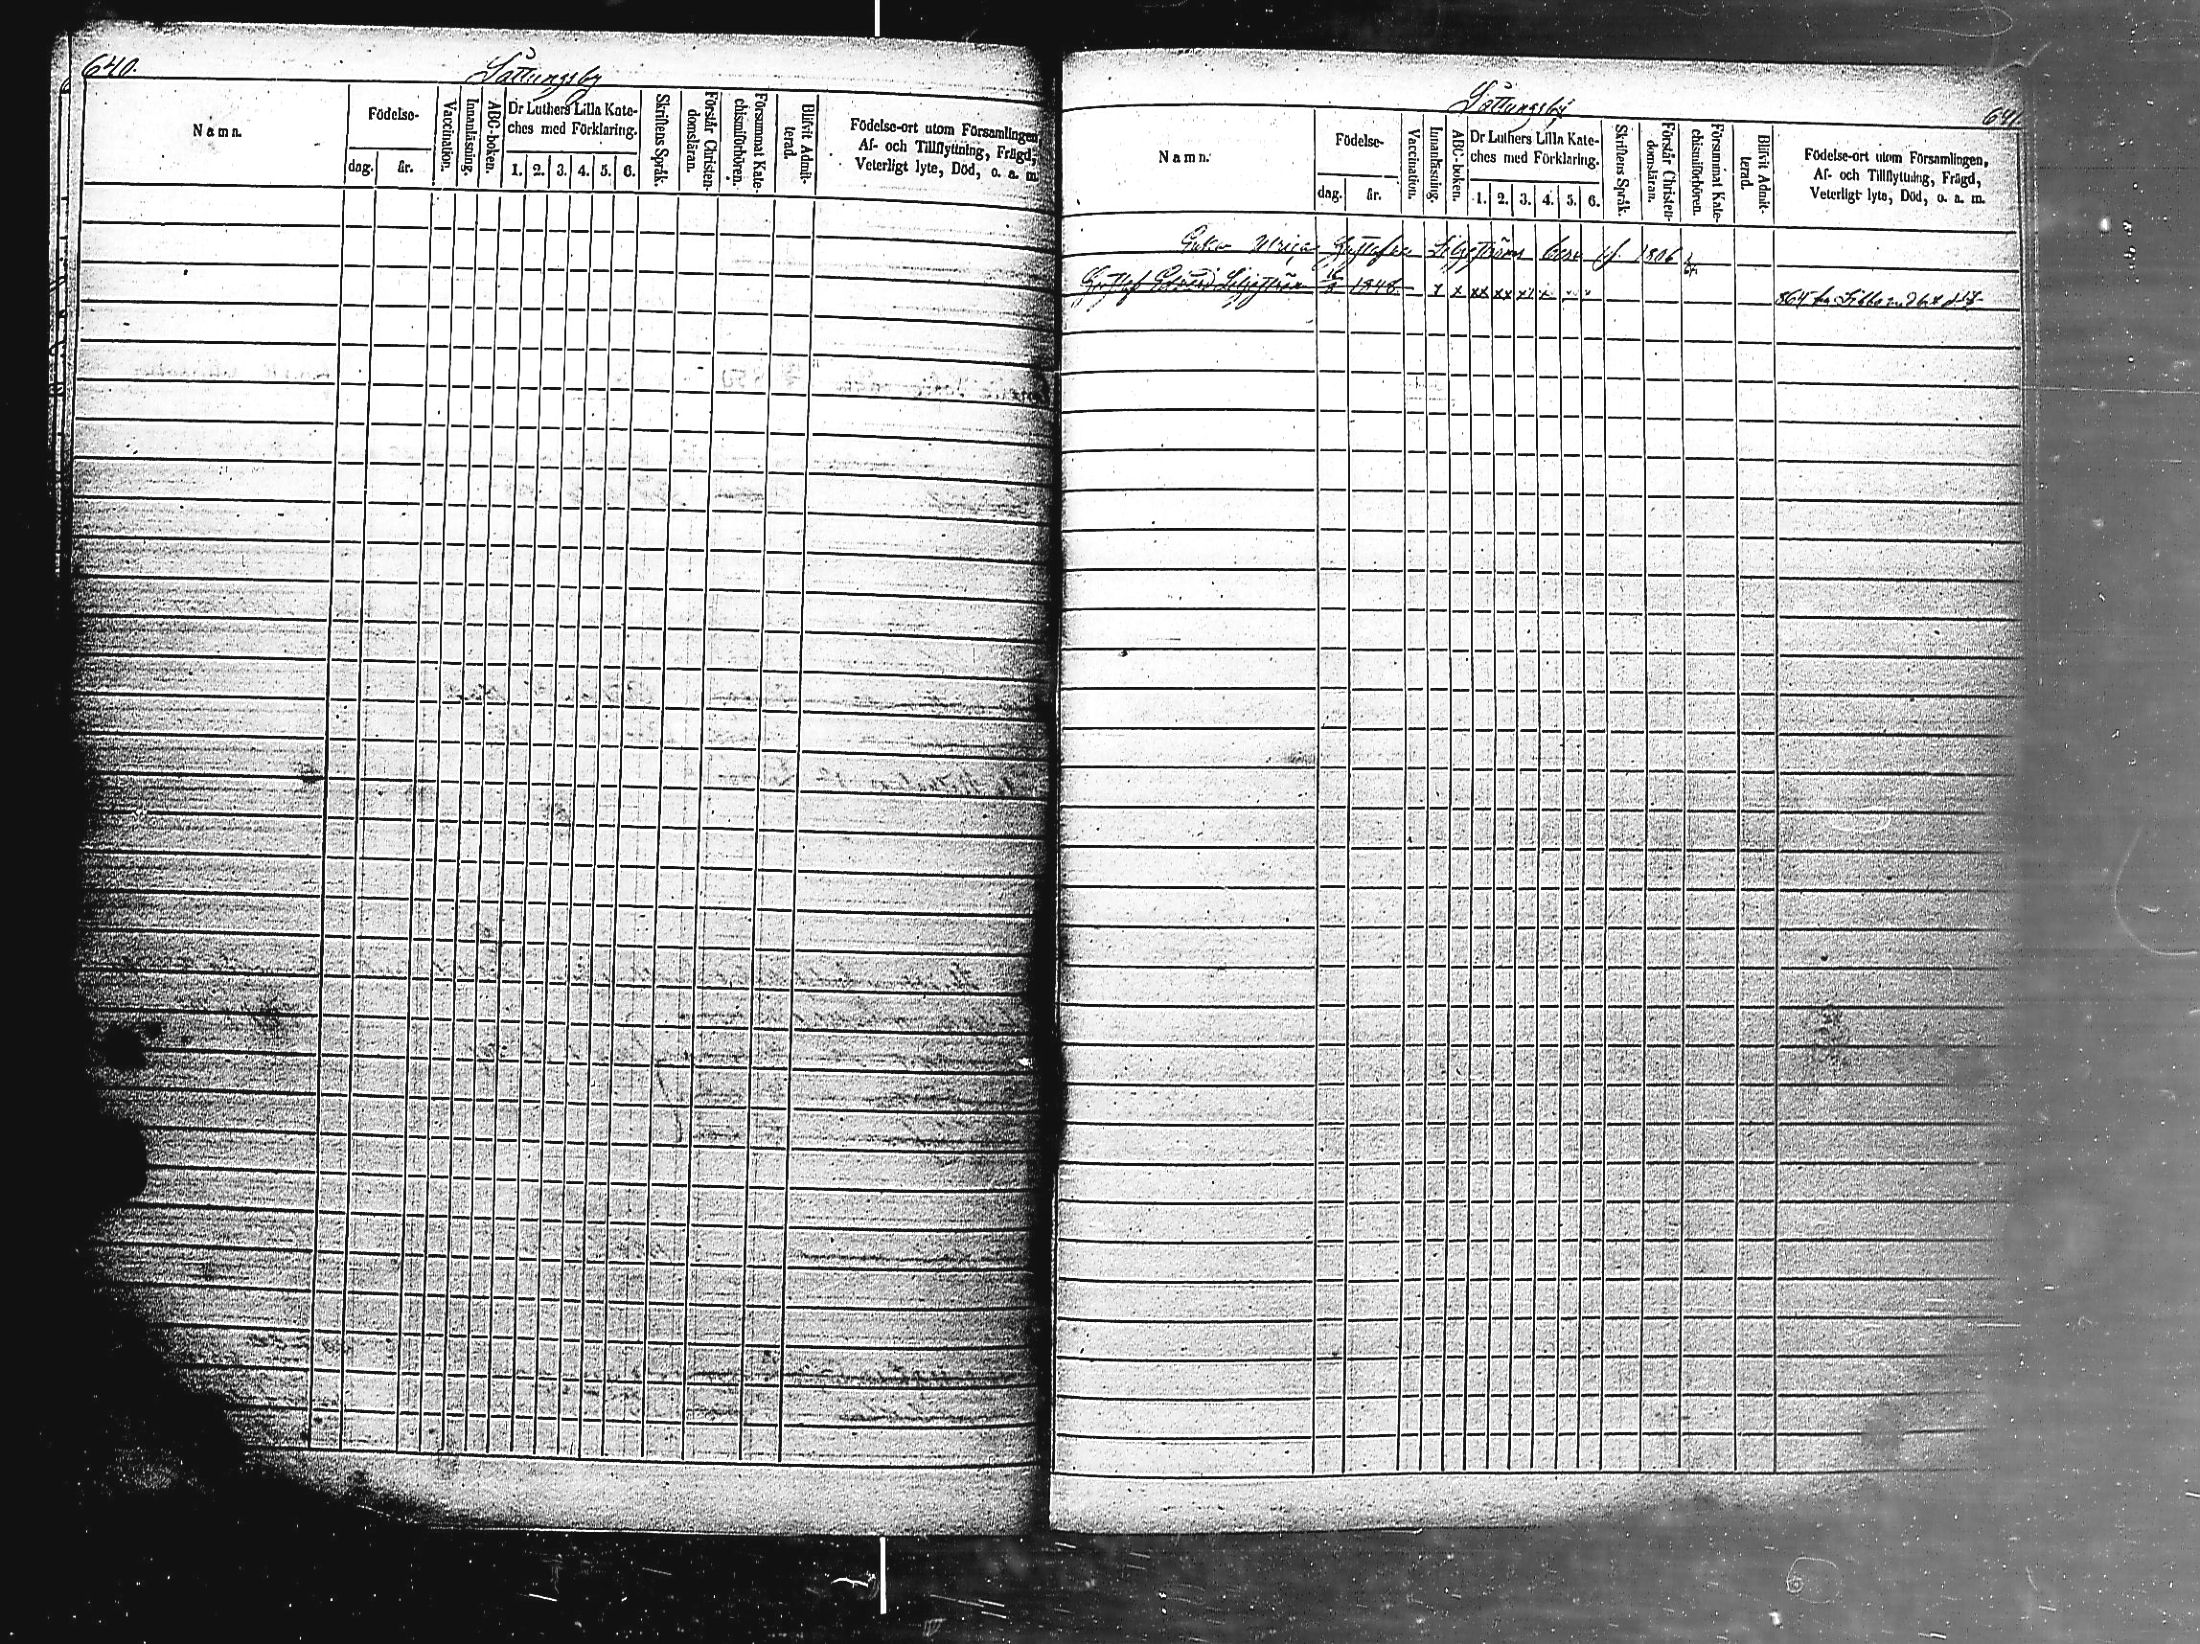 640.
Sättungsby
Namn.
Födelse-
dag.
år.
Vaccination.
Innanläsning.
ABC-boken.
Dr Luthers Lilla Kate-
ches med Förklaring.
1. 2. 3. 4. 5. 6.
Skriftens Språk.
Förstår Christen-
domsläran.
Försummat Kate-
chismiförhören.
Blifvit Admit-
terad.
Födelse-ort utom Församlingen,
Af- och Tillflyttning, Frägd,
Veterligt lyte, Död, o. a. m.
Sättungsby
641.
Namn.
Födelse-
dag.
år.
Vaccination.
Innanläsning.
ABC-boken.
Dr Luthers Lilla Kate-
ches med Förklaring.
1. 2. 3. 4. 5. 6.
Skriftens Språk.
Förstår Christen-
domsläran.
Försummat Kate-
chismiförhören.
Blifvit Admit-
terad.
Födelse-ort utom Församlingen,
Af- och Tillflyttning, Frägd,
Veterligt lyte, Död, o. a. m.
Enkan Ulrica Gustafva Liljeström 1806
Gustaf Edvard Liljeström 1848 x x xx xx x1 x